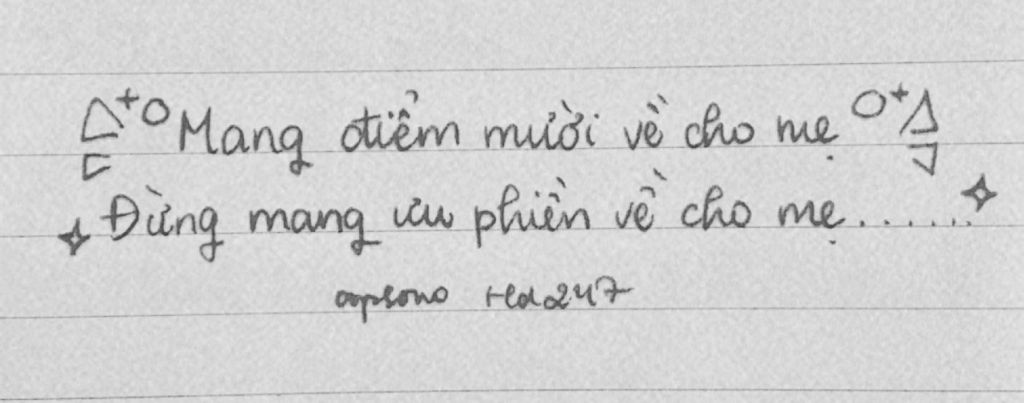 Mang điểm mười về cho mẹ
Đừng mang ưu phiền về cho mẹ.......